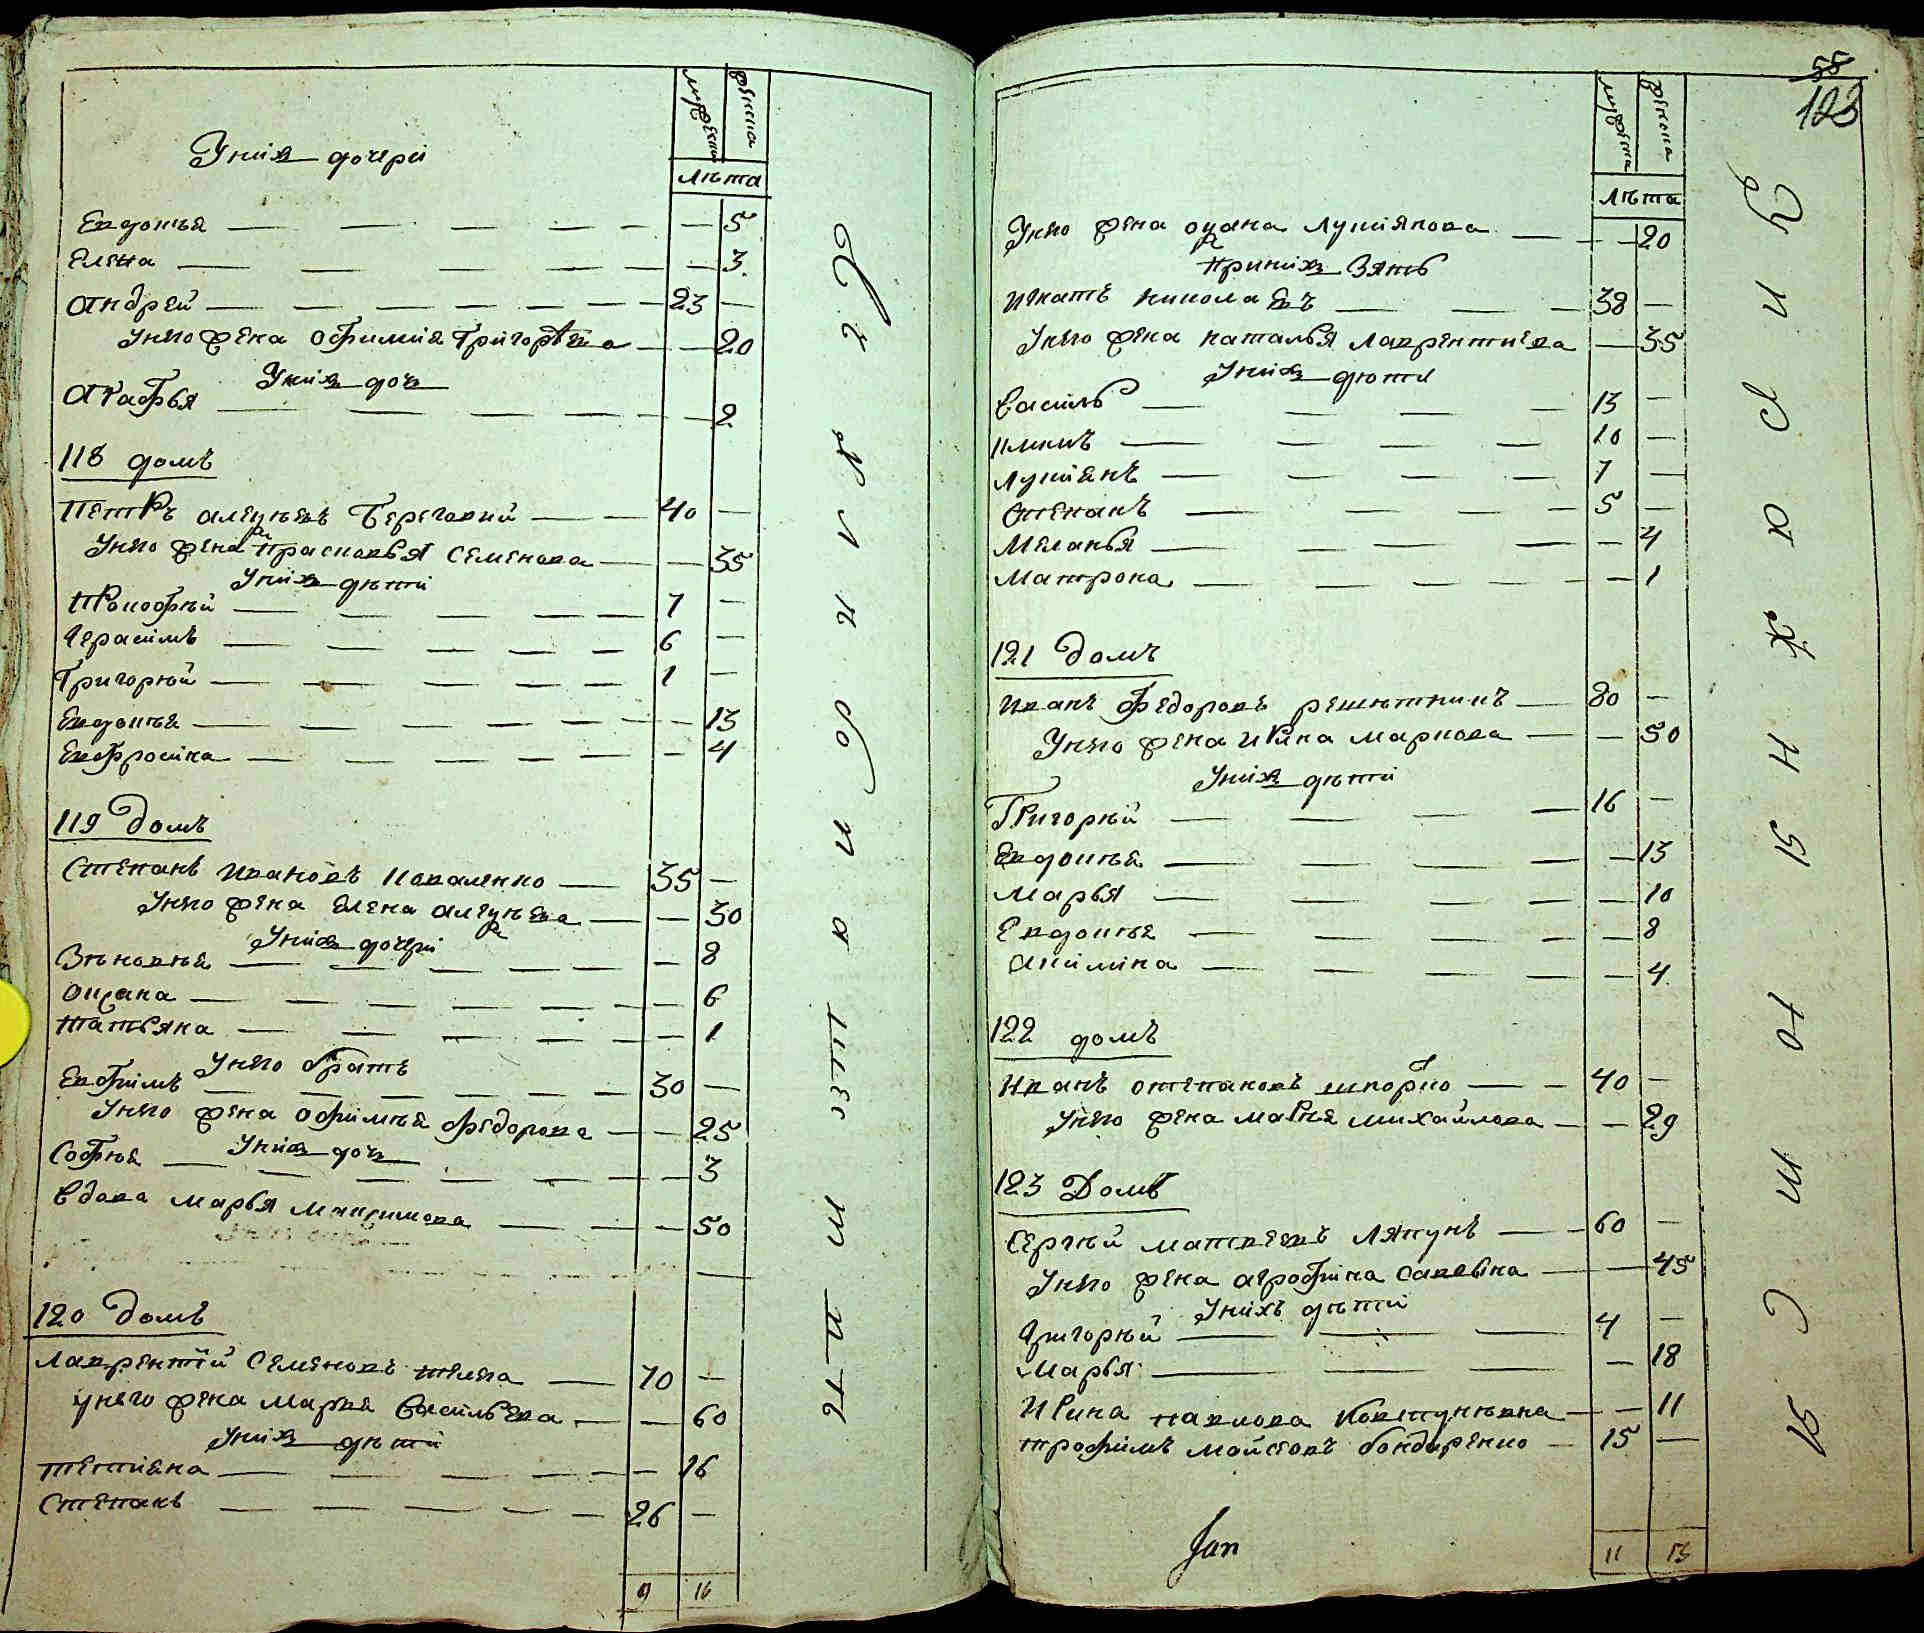 мужеска
женска
лѣта
Унихъ дочери
Евдокѣя — 5
Елена — 3
Андрей 23 —
Унего жена Офимия Григорѣва — 20
Унихъ дочь
Агафья — 2
118 домъ
Петръ Алеѯѣевъ Береговий 40 —
Унего жена Прасковья Семенова — 35
Унихъ дѣти
Прокофѣй 7 —
Герасимъ 6 —
Григорѣй 1 —
Евдокѣя — 13
Евфросина — 4
119 домъ
Степанъ Ивановъ Коваленко 35 —
Унего жена Елена Алеѯѣева — 30
Унихъ дочери
Зѣновѣя — 8
Оксана — 6
Татьяна — 1
Унего братъ
Евфимъ 30 —
Унего жена Офимѣя Федорова — 25
Унихъ дочь
Софѣя — 3
Вдова Марья Максимова — 50
120 домъ
Лаврентий Семеновъ 70 —
унего жена Марѣя Васильева — 60
Унихъ дѣти
Тетиана — 16
Степанъ 26 —
9 16
58
123
мужеска
женска
лѣта
Унего жена Оѯана Лукиянова — 20
Принихъ Зять
Игнатъ Николаевъ 38 —
Унего жена Наталья Лаврентиева — 35
Унихъ дѣти
Василь 13 —
10 —
Лукиянъ 7 —
Степанъ 5 —
Меланья — 4
Матрона — 1
121 домъ
Иванъ Федоровъ Решѣтникъ 80 —
Унего жена Ирина Маркова — 50
Унихъ дѣти
Григорѣй 16 —
Евдокѣя — 13
Марья — 10
Евдокѣя — 8
Акилина — 4
122 домъ
Иванъ Степановъ 40 —
Унего жена Марѣя Михайлова — 29
123 Домъ
Сергѣй Матвеевъ Ляпунъ 60 —
Унего жена Агрофина Савовна — 45
Унихъ дѣти
Григорѣй 4 —
Марья — 18
Ирина Павлова Ковтунѣвна — 11
Трофимъ Мойсеовъ Бондаренко 15 —
11 13